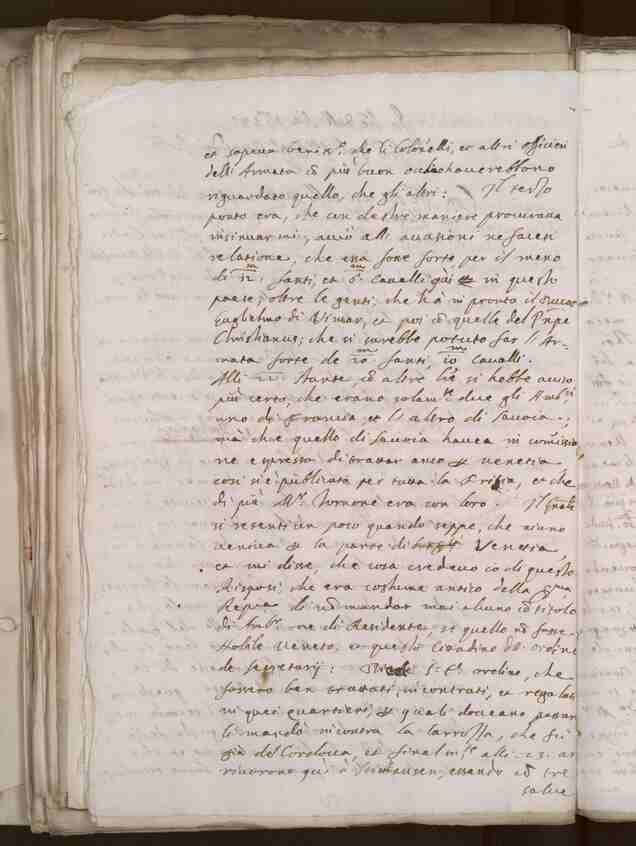 et sapeva beniss.º che li Colonelli, et altri officieri
dell'Armata cõ più buon occhio haverebbono
riguardato quello, che gli altri: Il terzo
ponto era, che con destre maniere procurava
insinuarmi, acciò alli occasioni ne facesi
relatione, che era forse forte, per il meno
di 12 fanti, et 6 Cavalli qui in questi
paesi, oltre le genti, che hà in pronto il Duca
Guglielmo di Vimar, et poi cõ quelle del Pñpe
Christianus; che si sarebbe potuto far l'Ar-
mata forte de 20 fanti, 10 Cavalli.
Alli 22 stante, cõ altre l're si hebbe aviso
più certo, che erano solam.te due gli Amb.ri
uno di Francia, et l'altro di Savoia;
mà che quello di Savoia haveva in comissio
ne espressa di trattar anco Venetia
così si è publicata per tutta la, et che
di più M.r era con loro. Il quale
si resentì un poco quando seppe, che niuno
veniva la parte di Venetia,
et mi disse, che cosa credevo io di questo
Risposi che era costume antico della
Rep.ca di nõ mandar mai alcuno cõ titolo
di Amb.r ne di Residente, se quello nõ fosse
Nobile Veneto, et questo Citadino dell'ordine
de secretarij: Diede S. E. ordine, che
fossero ben trattati, incontrati, et regalati
in quei quartieri, quali doveano passar
li mandò incontra la carrozza, che fù
già del Cordova, et final m.te alli 23 ar
rivorono quì à, essendo cõ tre
salve